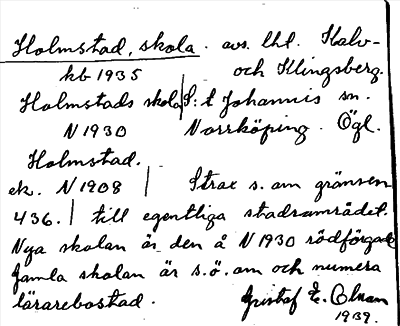 Holmstad, skola. avs. lht. Halv-
kb 1935 och Klingsberg.
Holmstads skola S:t Johannis sn.
N 1930 Norrköping. Ögl.
Holmstad.
ek. N 1908 | Strax s. om gränsen
436. | till egentliga stadsområdet.
Nya skolan är den å N 1930 rödfärgade
Gamla skolan är s.ö. om och numera
lärarebostad. Gustaf E.
1939.